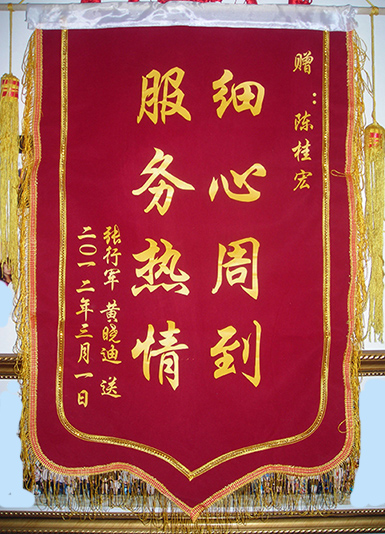 赠：陈桂宏
细心周到
服务热情
张行军 黄晓迪 送
二〇一二年三月一日